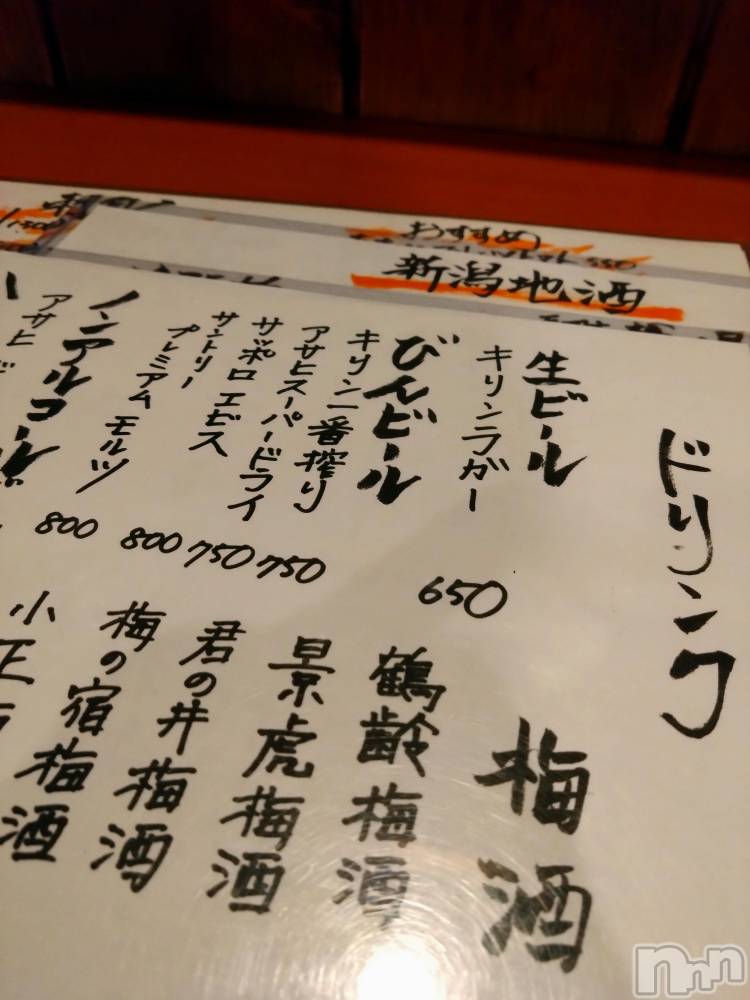 おすすめ
新潟地酒
ドリンク
生ビール
キリンラガー
650
びんビール
キリン一番搾り
750
アサヒスーパードライ
750
サッポロヱビス
800
サントリー
プレミアムモルツ
800
ノンアルコールビ
アサヒ
梅酒
鶴齢梅酒
景虎梅酒
君の井梅酒
梅の宿梅酒
小正
梅酒
nnn